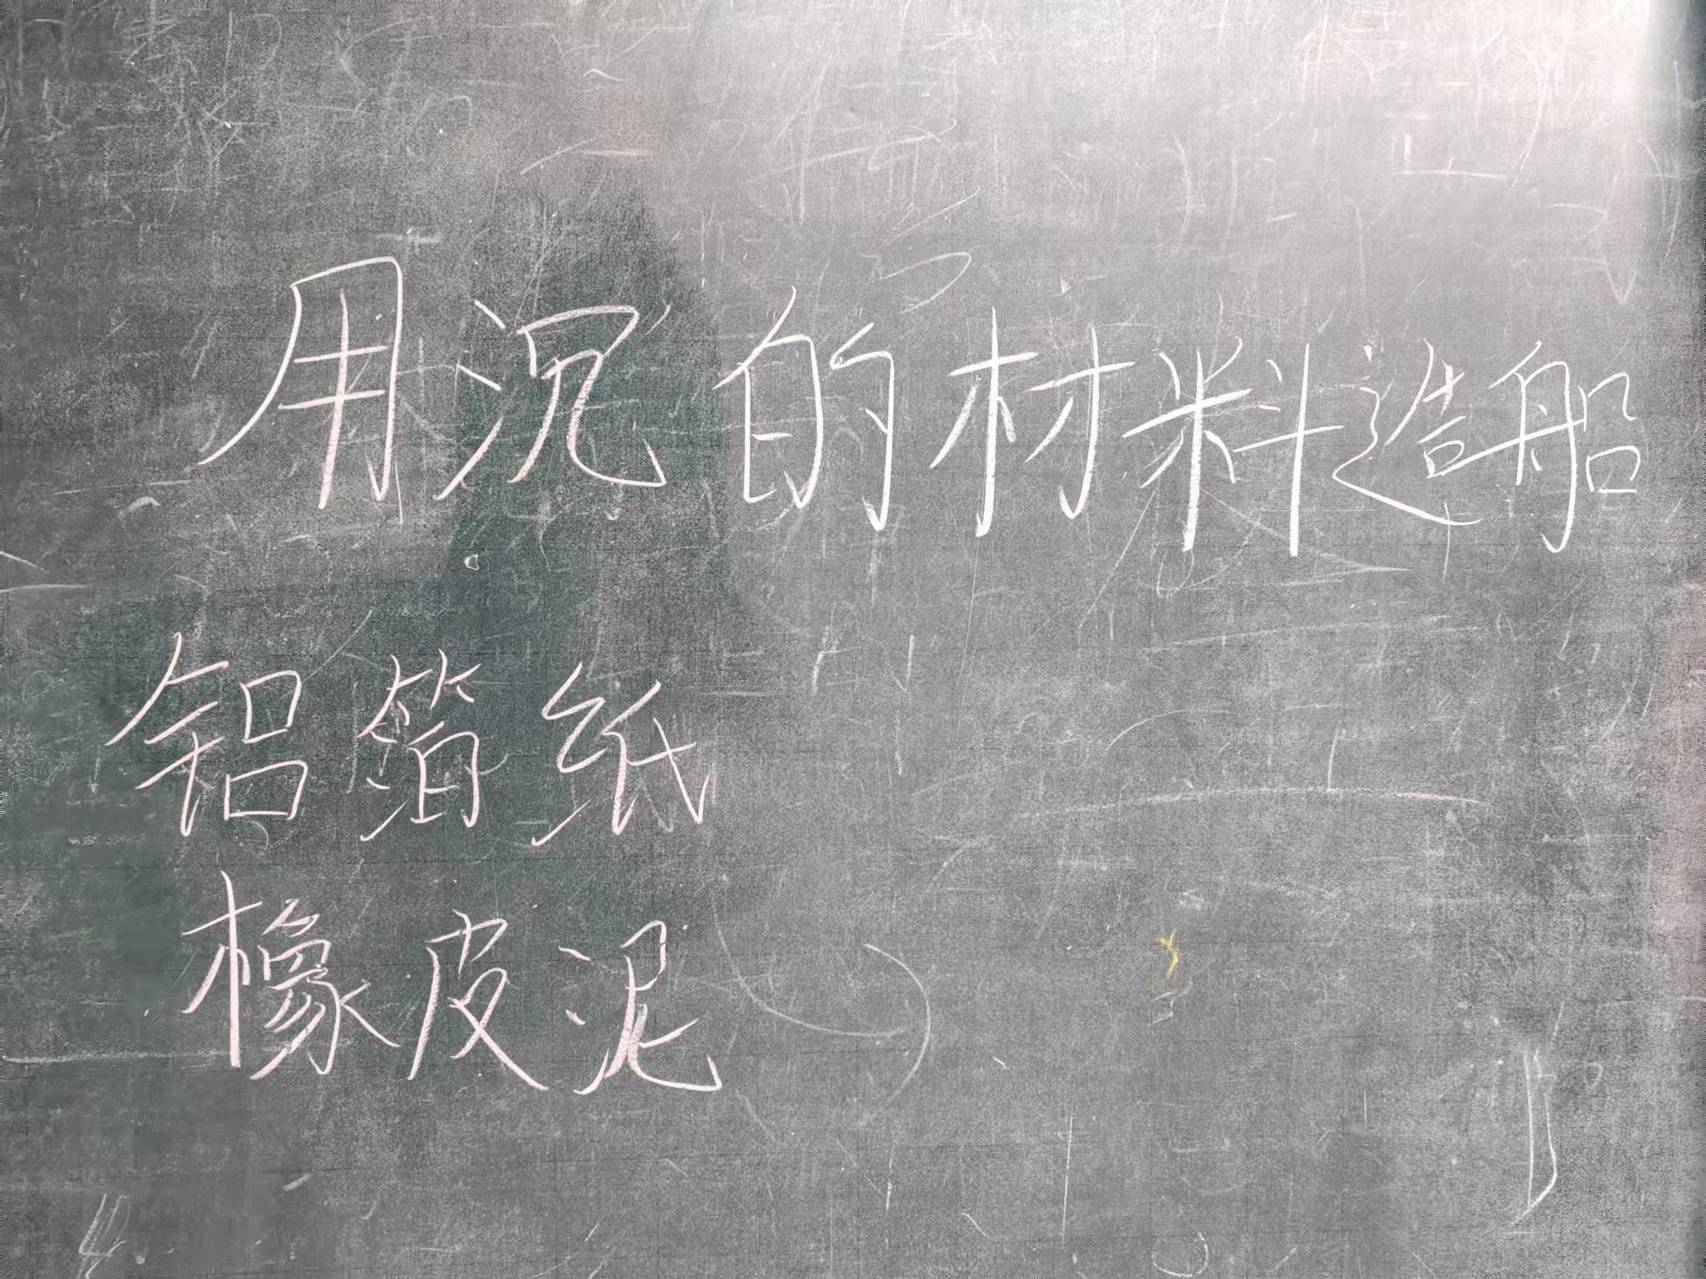 用沉的材料造船
铝箔纸
橡皮泥